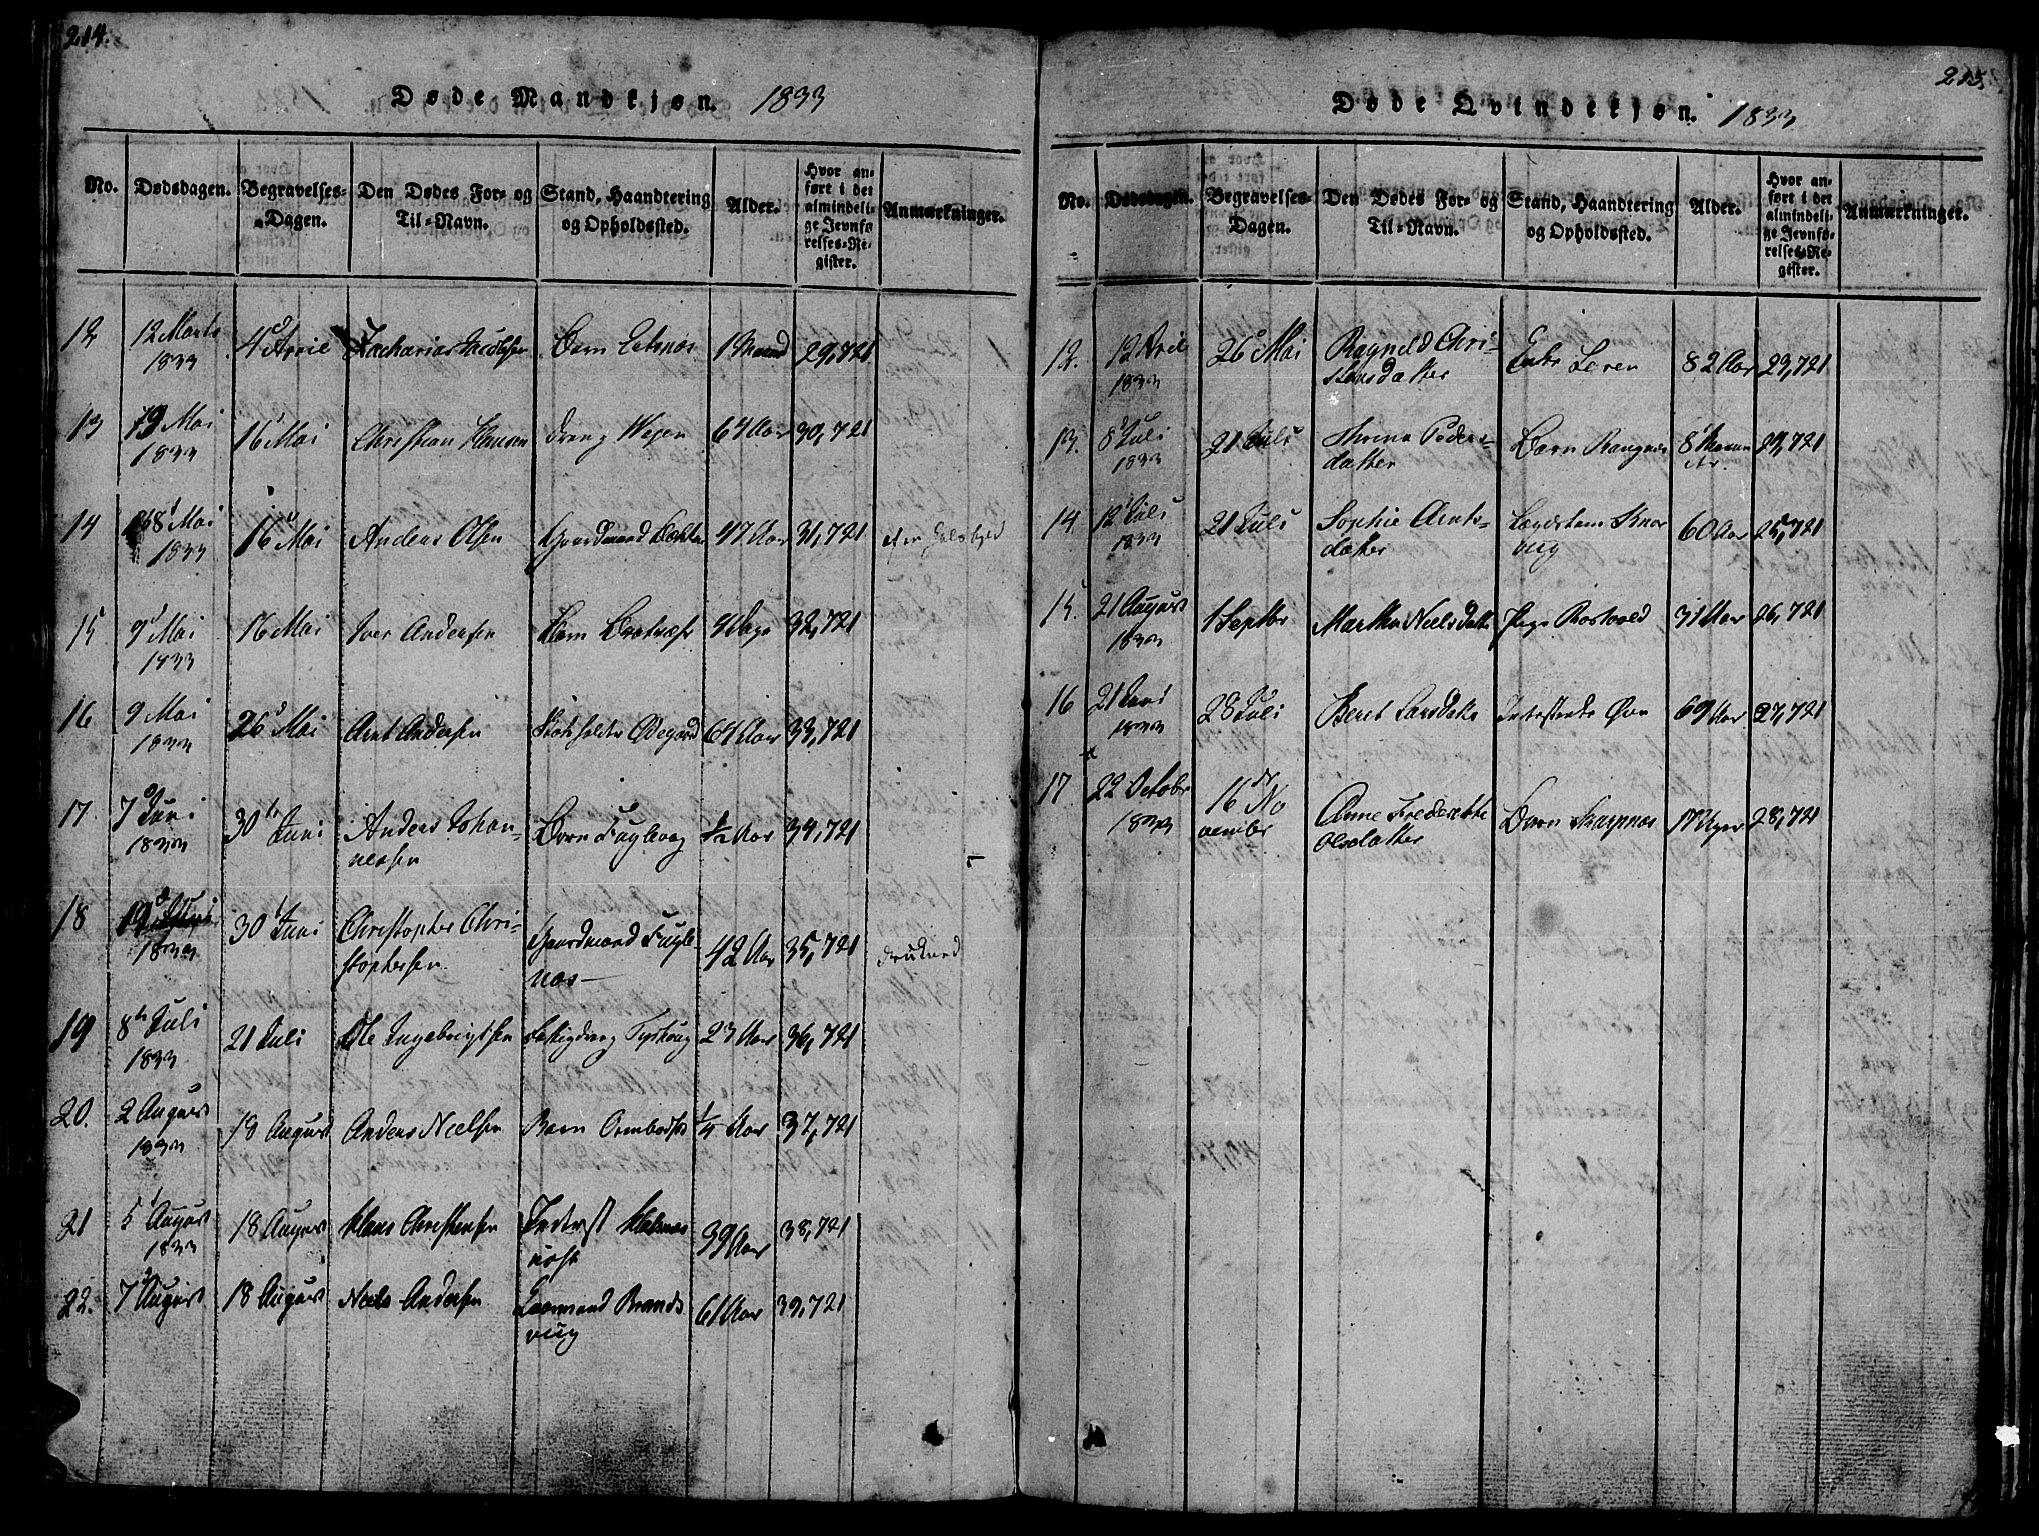 214.
Døde Mandkjøn. 1833
No. Dødsdagen. Begravelses-Dagen. Den Dødes For- og Til-Navn. Stand, Haandtering og Opholdssted. Alder. Hvor anført i det almindelige Jevnførelses-Register. Anmærkninger.
12 12 Marts 1833 4 April Zacharias Jacobsen Barn 1 Maaned 29,721
13 13 Mai 1833 16 Mai Christian Hansen dreng Wejen 64 Aar 30,721
14 8 Mai 1833 16 Mai Anders Olsen Gaardmand 47 Aar 31,721
15 9 Mai 1833 16 Mai Iver Andersen Barn 4 Dage 32,721
16 9 Mai 1833 26 Mai Arnt Andersen Ødegaard 64 Aar 33,721
17. 7 Juni 1833 30 Juni Anders Johan-
nessen Barn Fuglevog 1/2 Aar 34,721
18 19 Juni 1833 30 Juni Christopher Chri-
stophersen Gaardmand Fugle
næs 42 Aar 35,721 druknet
19 8 Juli 1833 21 Juli Ole Ingebrigtsen 23 Aar 36,721
20. 2 August 1833 18 August Anders Nielsen Barn 1/4 Aar 37,721
21 5 August 1833 18 August Klaus Christensen Inderst 39 Aar 38,721
22. 7 August 18 August Niels Andersen Brands
viig 61 Aar 39,721
215.
Døde Qvindekjøn. 1833
No. Dødsdagen. Begravelses-Dagen. Den Dødes For- og Til-Navn. Stand, Haandtering og Opholdssted. Alder. Hvor anført i det almindelige Jevnførelses-Register. Anmærkninger.
12. 12 April 1833 26 Mai Ragneld Chri-
stensdatter Enke Leren 82 Aar 23,721
13. 8 Juli 1833 21 Juli Peders-
datter Barn 8 24,721
14. 12 Juli 1833 21 Juli Sophie Arnts-
datter 60 Aar 25,721
15. 21 August 1833 1 Septbr Martha Nielsdatter Pige 31 Aar 26,721
16 21 Juni 1833 28 Juli Beret Larsdatter 69 Aar 27,721
17 22 October 1833 16 No
vember Anne Frederikke
Olsdatter Barn 17 Uger 28,721